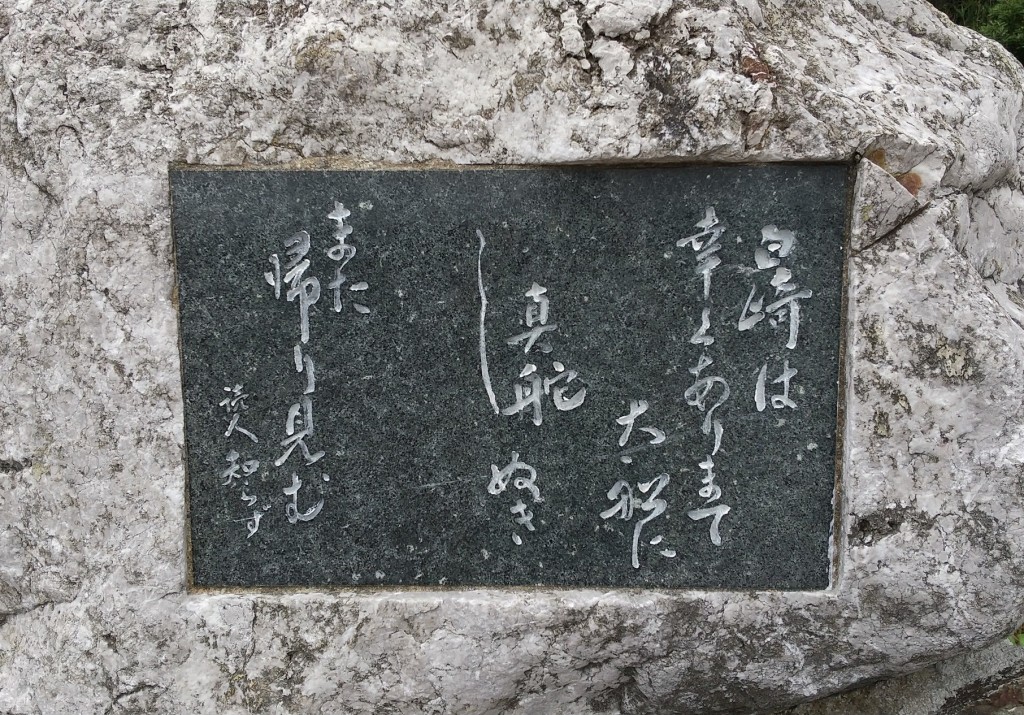 白崎は
幸くあり待て
大船に
真舵
しゞぬき
また
帰り見む
読人知らず